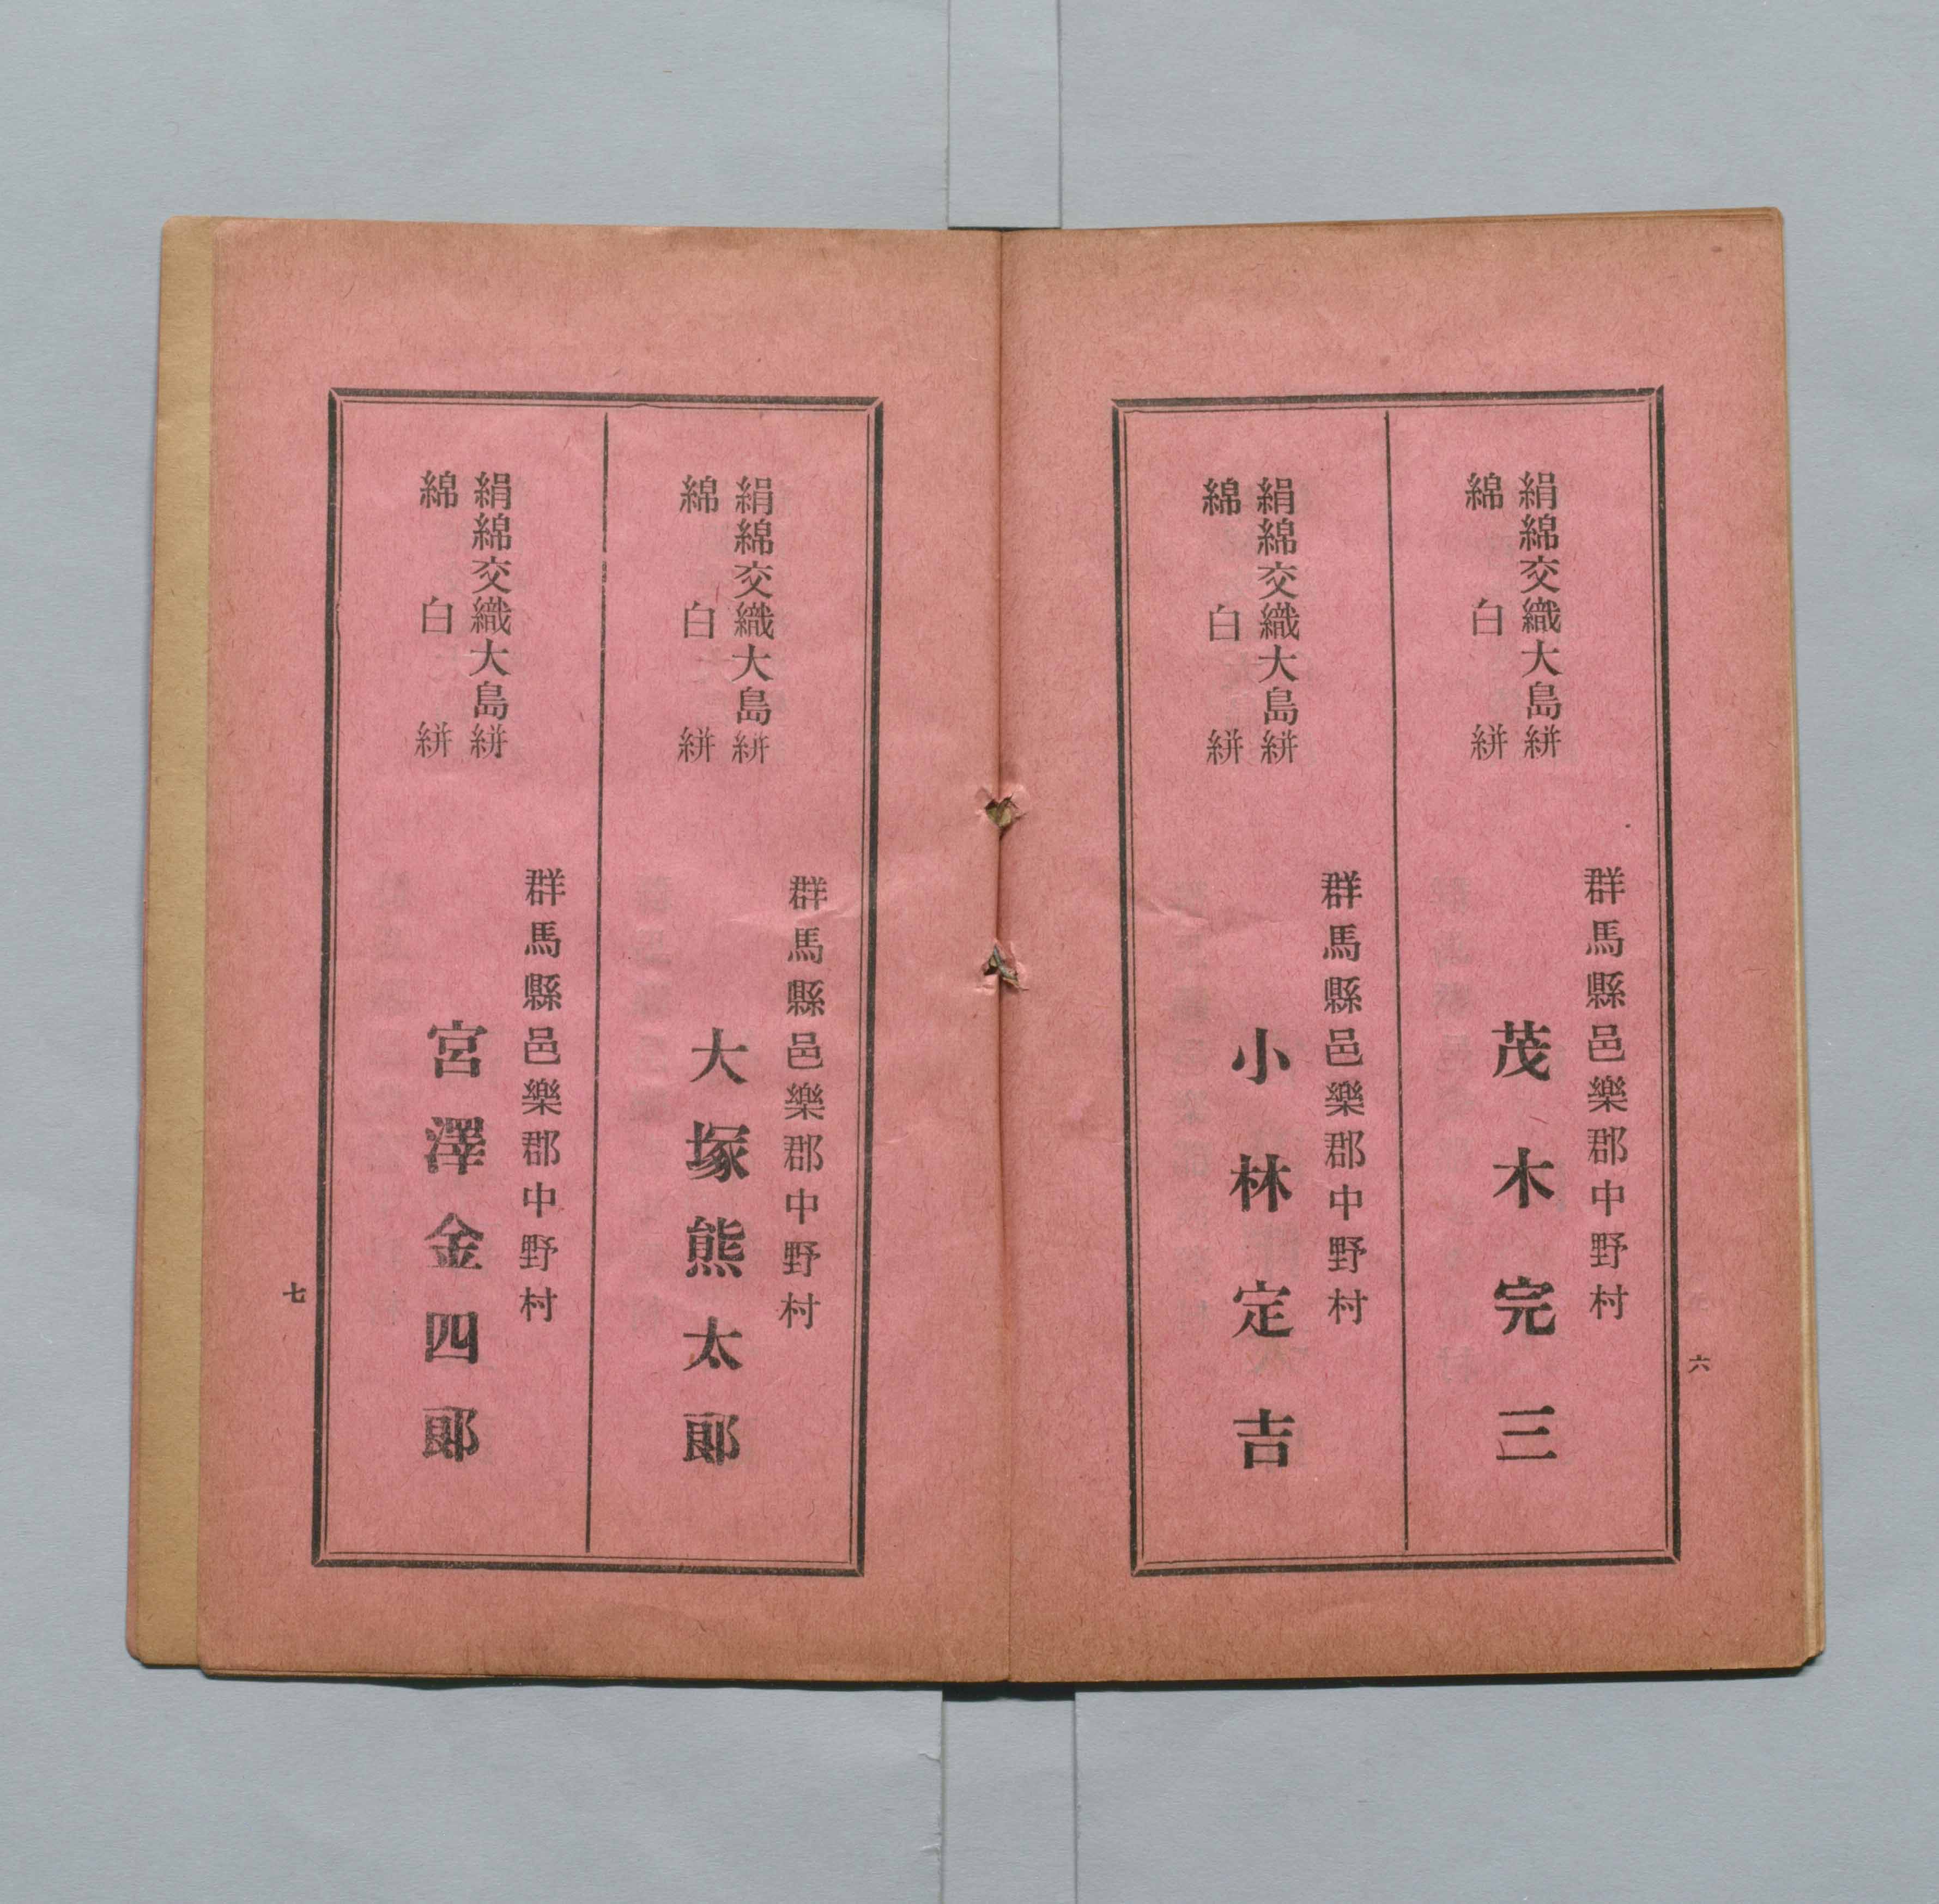 絹綿交織大島絣
綿白絣
群馬縣邑樂郡中野村
茂木完三
絹綿交織大島絣
綿白絣
群馬縣邑樂郡中野村
小林定吉
六
絹綿交織大島絣
綿白絣
群馬縣邑樂郡中野村
大塚熊太郎
絹綿交織大島絣
綿白絣
群馬縣邑樂郡中野村
宮澤金四郎
七